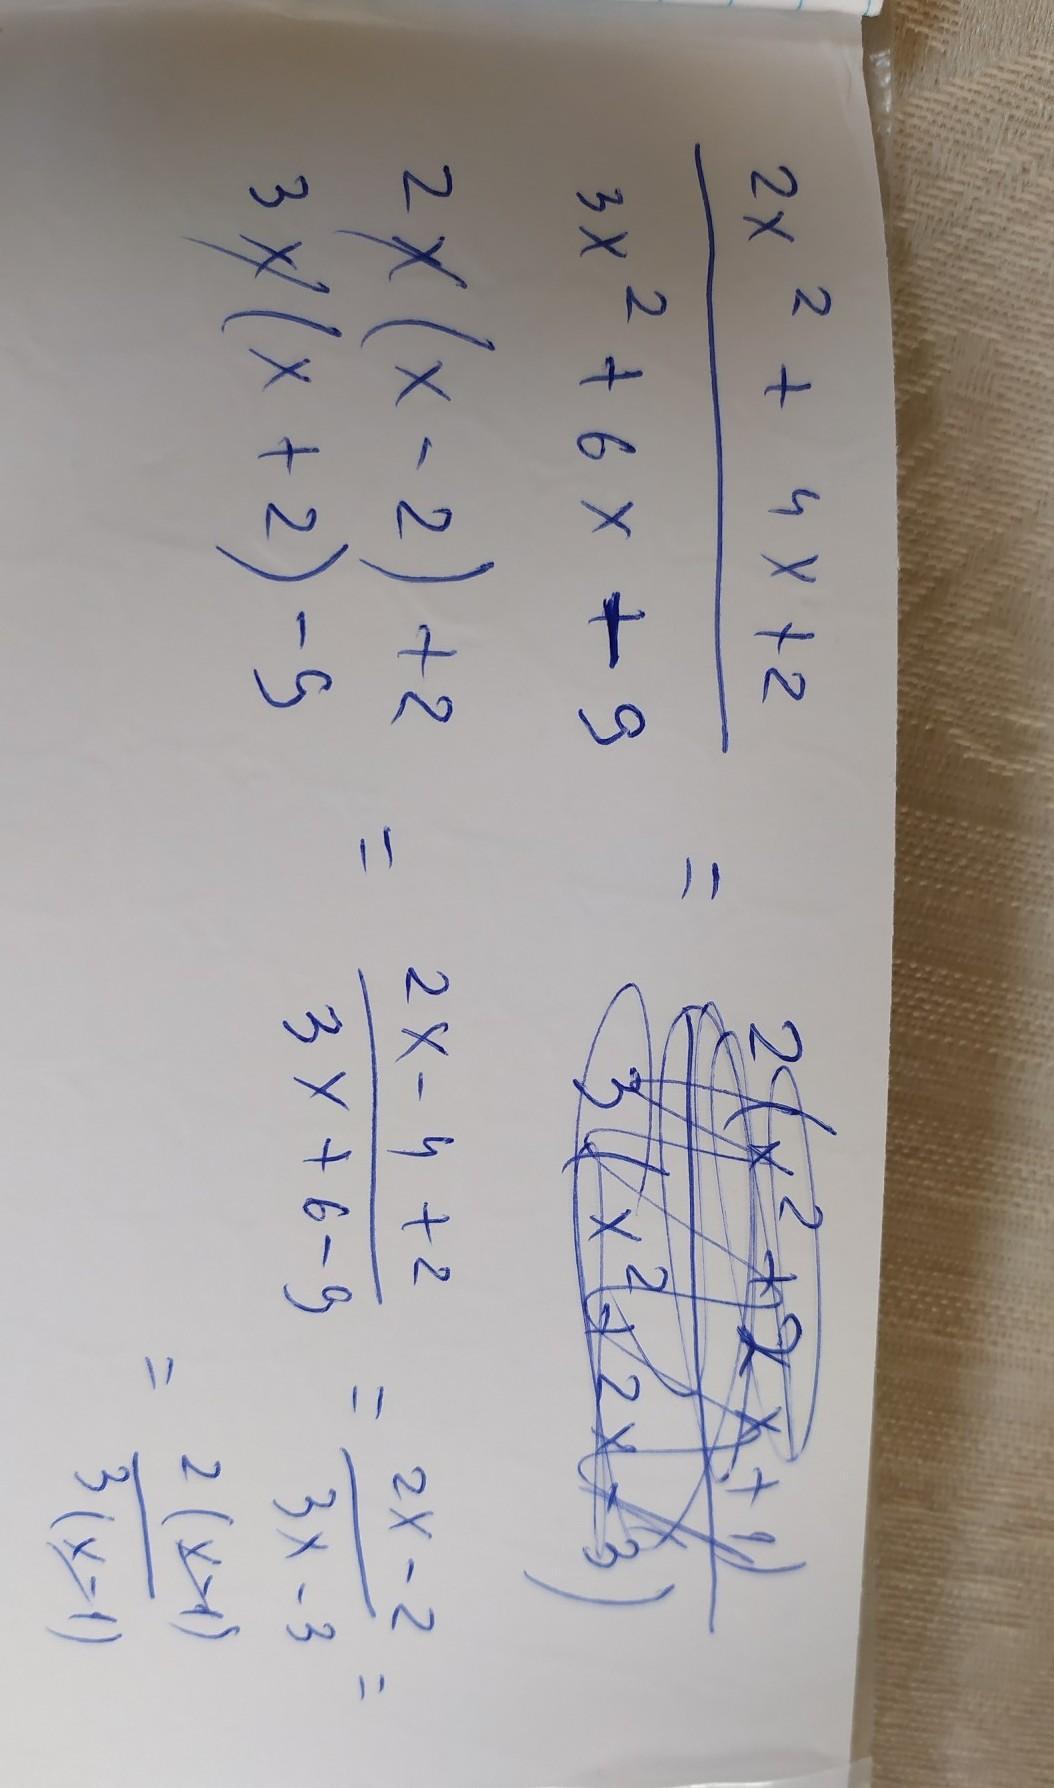 2x² + 4x + 2
3x² + 6x + 9
=
2(x² + 2x + 1)
3(x² + 2x - 3)
2x(x - 2) + 2
3x(x + 2) - 9
=
2x - 4 + 2
3x + 6 - 9
=
2x - 2
3x - 3
=
=
2(x-1)
3(x-1)